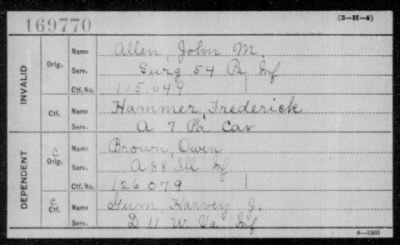 169770
(3-H-4)
INVALID
Orig. Name Allen, John M.
Serv. Surg 54 Pa Inf
Ctf. No. 115,649
Ctf. Name Hammer, Frederick
Serv. A 7 Pa. Cav
DEPENDENT
C Orig. Name Brown, Owen
Serv. A 88 Ill Inf
Ctf. No. 126079
C Ctf. Name Gum, Harvey J.
Serv. D 11 W. Va Inf